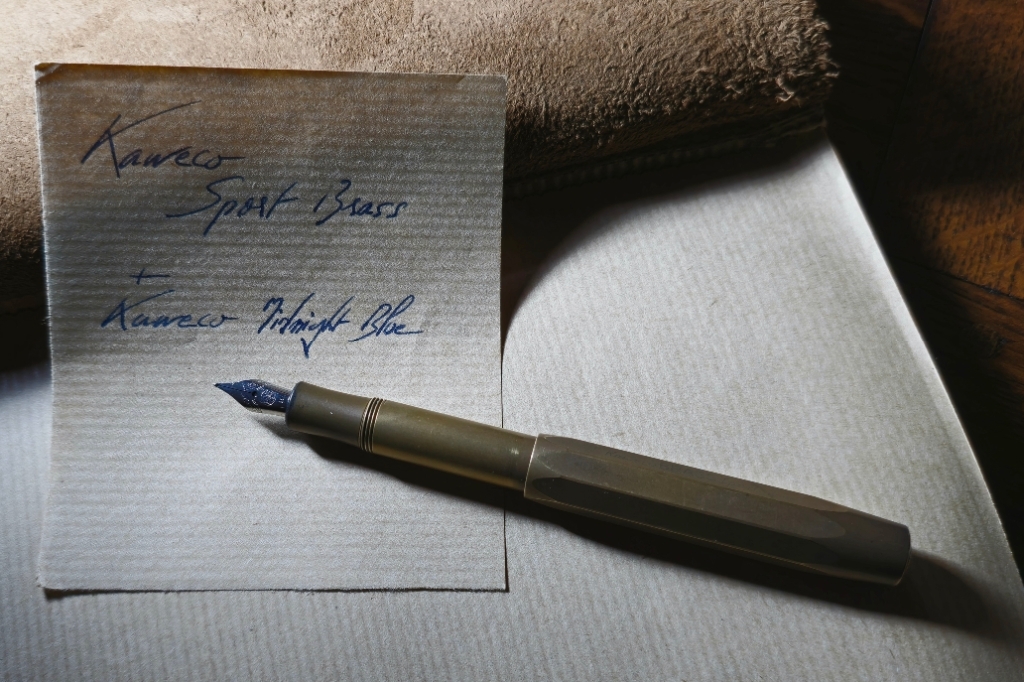 Kaweco
Sport Brass
+
Kaweco Midnight Blue